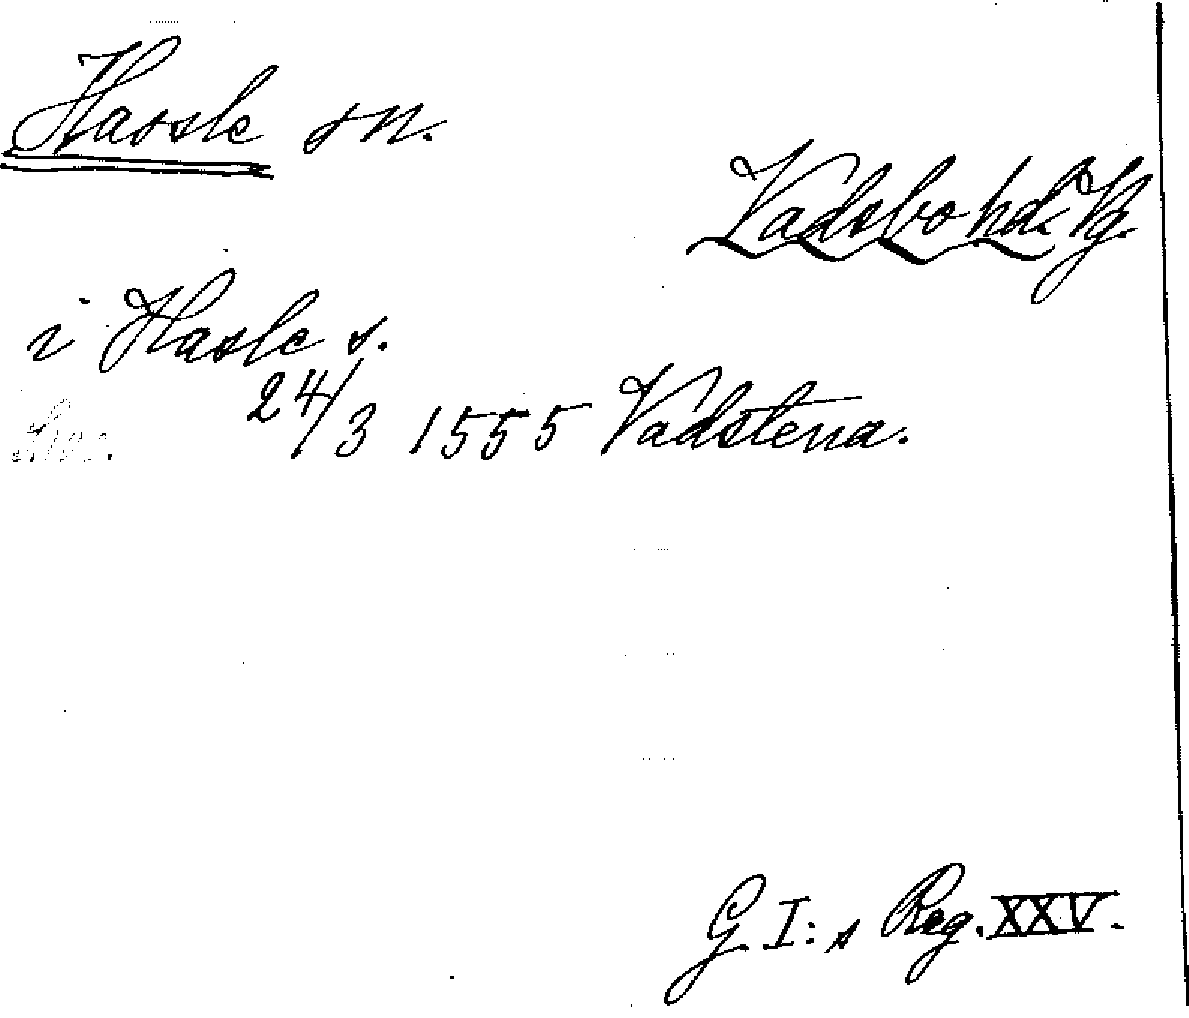 Hassle sn.
Vadsbo hd. Vg.
i Hasle s.
24/3 1555 Vadstena.
G. I:s Reg. XXV.